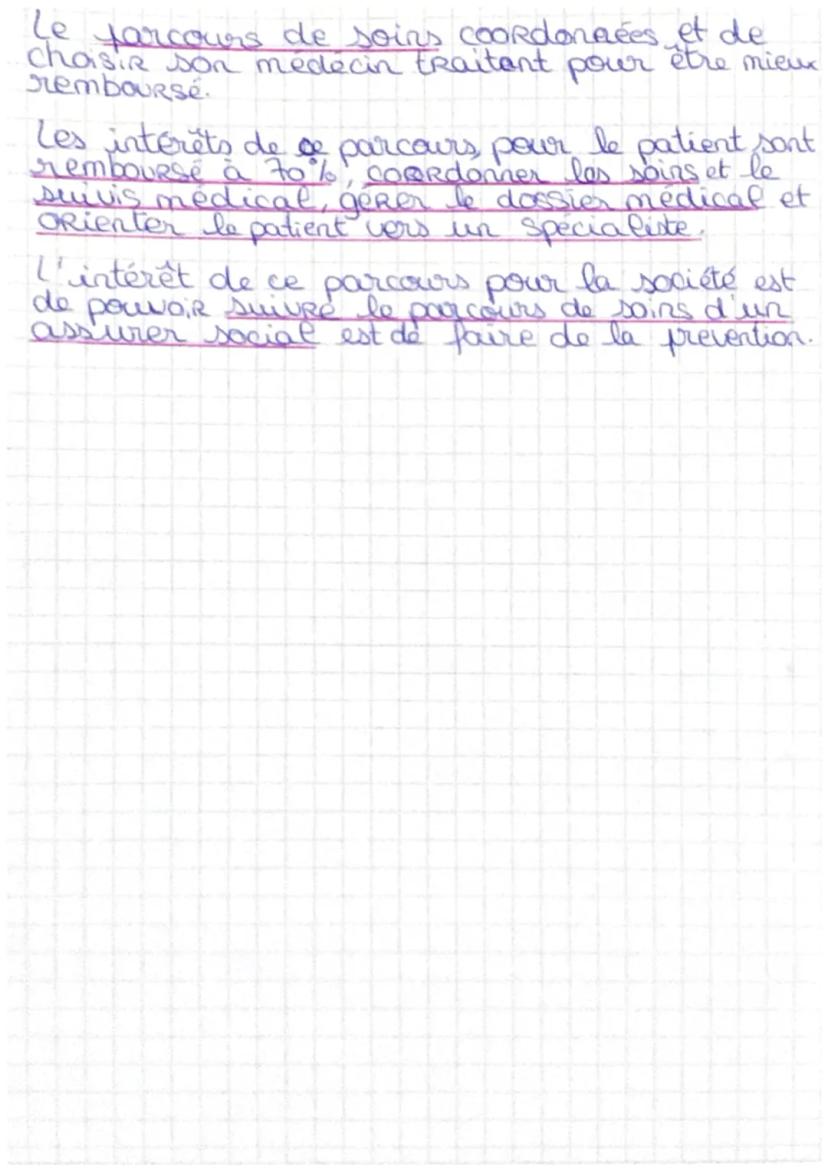 Le parcours de soins cooRdonnées et de
choisiR son médecin tRaitant pour être mieux
rembouRsé.
Les intérêts de ce parcours pour le patient sont
rembouRsé à 70%, cooRdonner les soins et le
suivis médical, géRer le dossier médical et
oRienter le patient vers un spécialiste.
L'intérêt de ce parcours pour la société est
de pouvoiR suivRe le parcours de soins d'un
assurer social est de faire de la prévention.